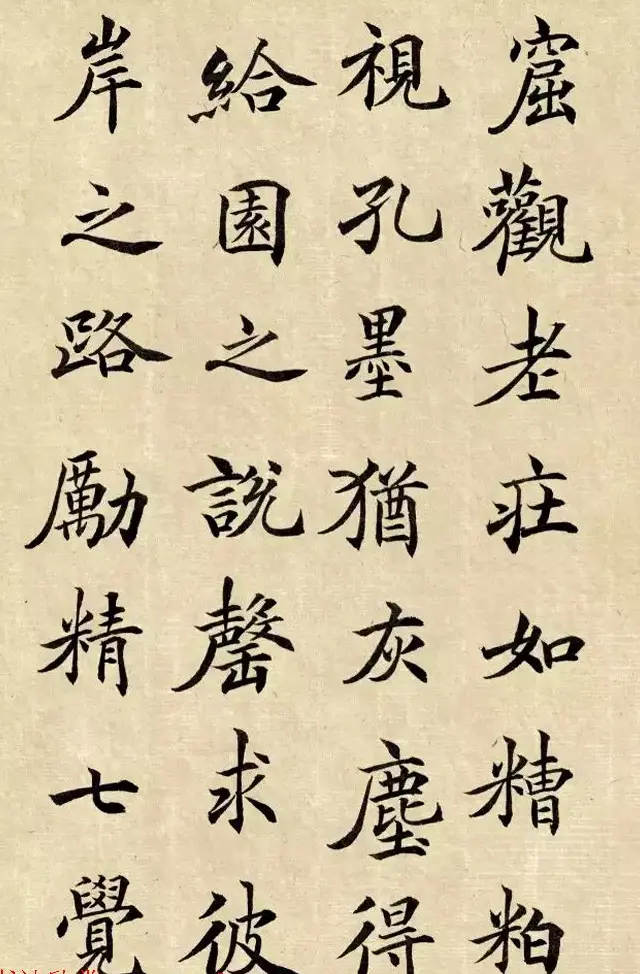 窟觀老庄如糟粕
視孔墨猶灰塵得
給園之說罄求彼
岸之路勵精七覺